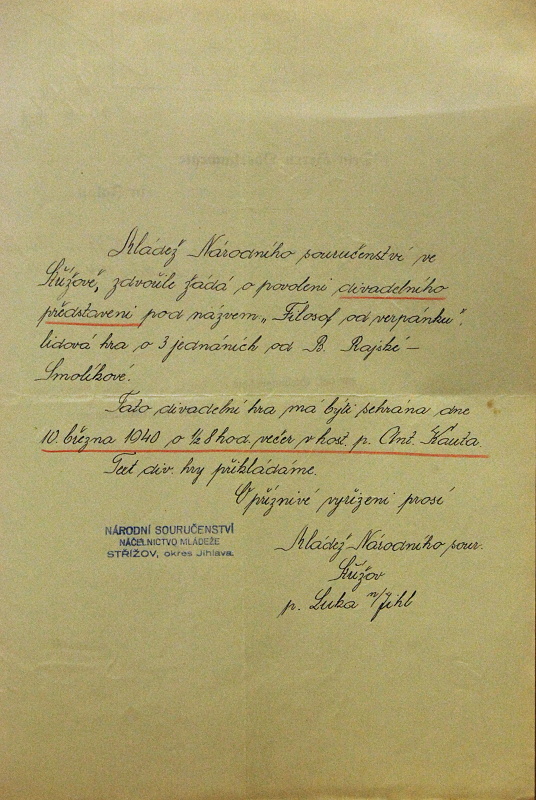 Mládež Národního souručenství ve
Střížově, zdvořile žádá o povolení divadelního
představení pod názvem „Filosof od verpánku",
lidová hra o 3 jednáních od B. Rajské-
Smolíkové.
Tato divadelní hra má býti sehrána dne
10. března 1940 o ½ 8 hod. večer v host. p. Ant. Kauta.
Text div. hry přikládáme.
O příznivé vyřízení prosí
NÁRODNÍ SOURUČENSTVÍ
NÁČELNICTVO MLÁDEŽE
STŘÍŽOV, okres Jihlava.
Mládež Národního sour.
Střížov
p. Luka n/Jihl